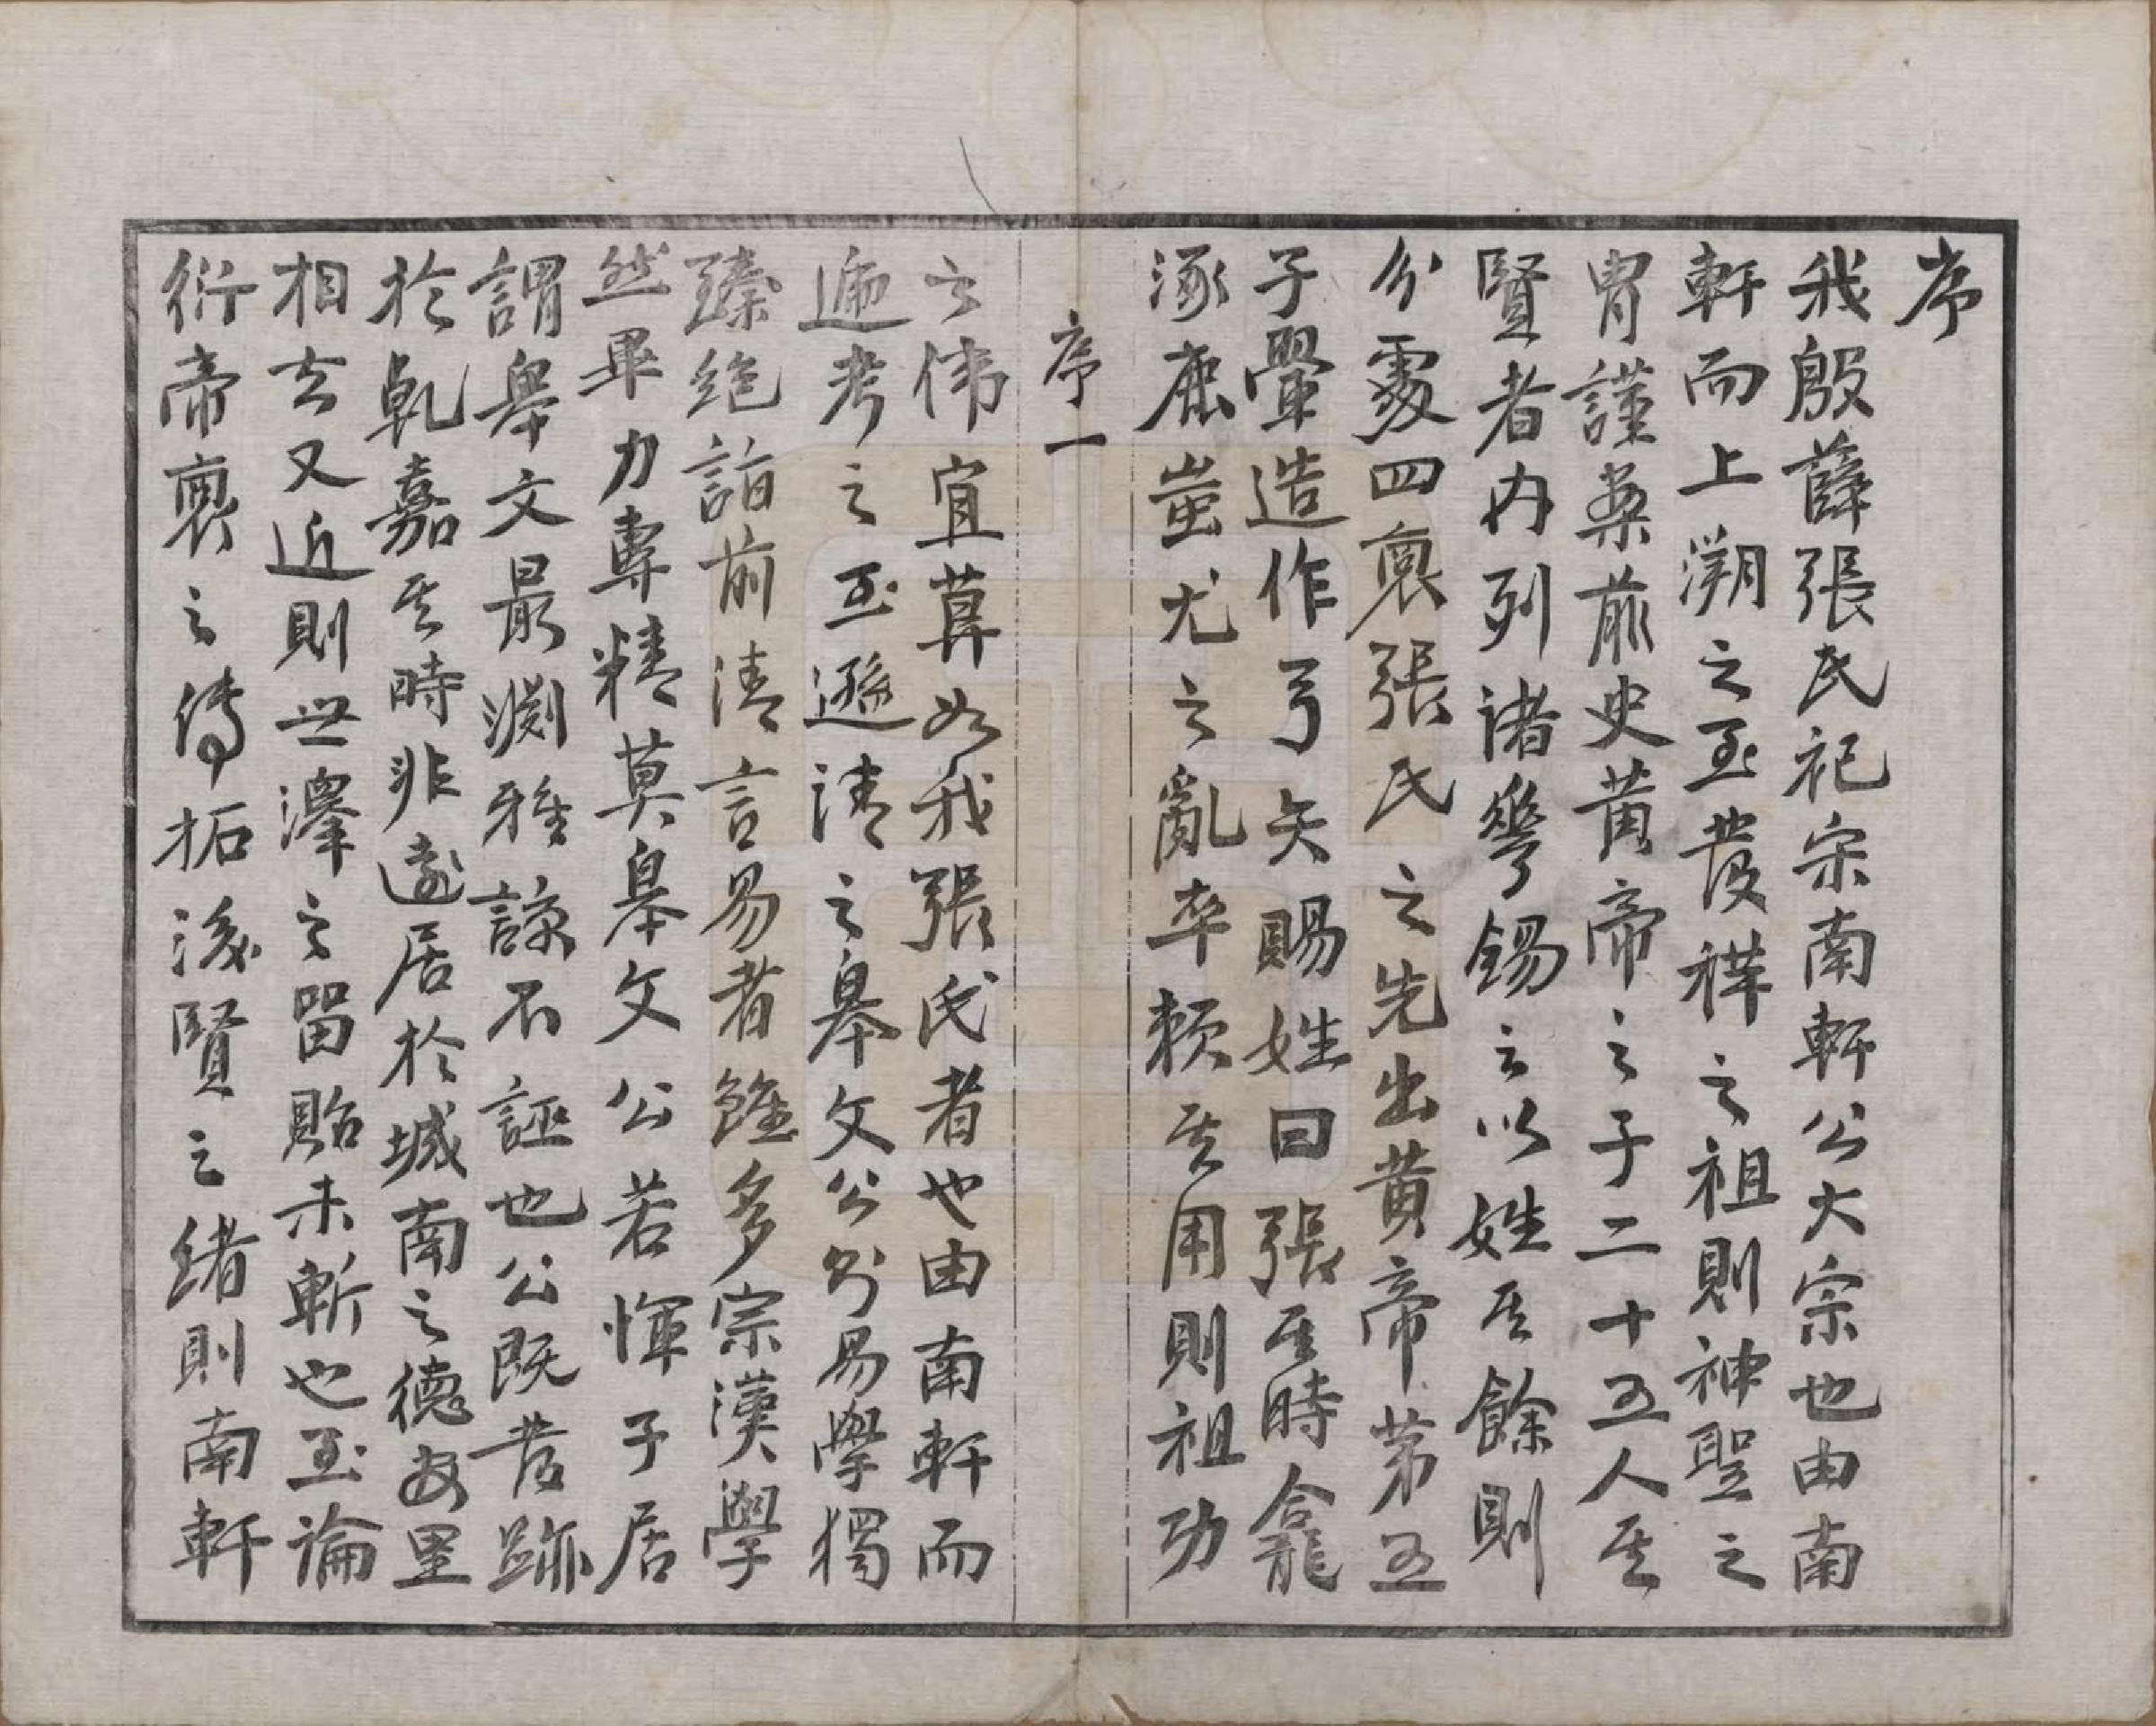 序
我殷薛張氏祀宗南軒公大宗也由南
軒而上溯之至發祥之祖則神聖之
胄謹案前史黃帝之子二十五人其
賢者內列諸夔錫之以姓其餘則
分處四裔張氏之先出黃帝第五
子翬造作弓矢賜姓曰張至時龕
涿鹿蚩尤之亂卒賴其用則祖功
序一
之偉宜莫如我張氏者也由南軒而
遞考之至遜清之皋文公治易學獨
臻絕詣前清言易者雖多宗漢學
然畢力專精莫皋文公若惲子居
謂皋文最淵雅諒不誣也公既發跡
於乾嘉其時非遠居於城南之德安里
相去又近則世澤之留貽未斬也至論
衍帝裔之傳拓後賢之緒則南軒